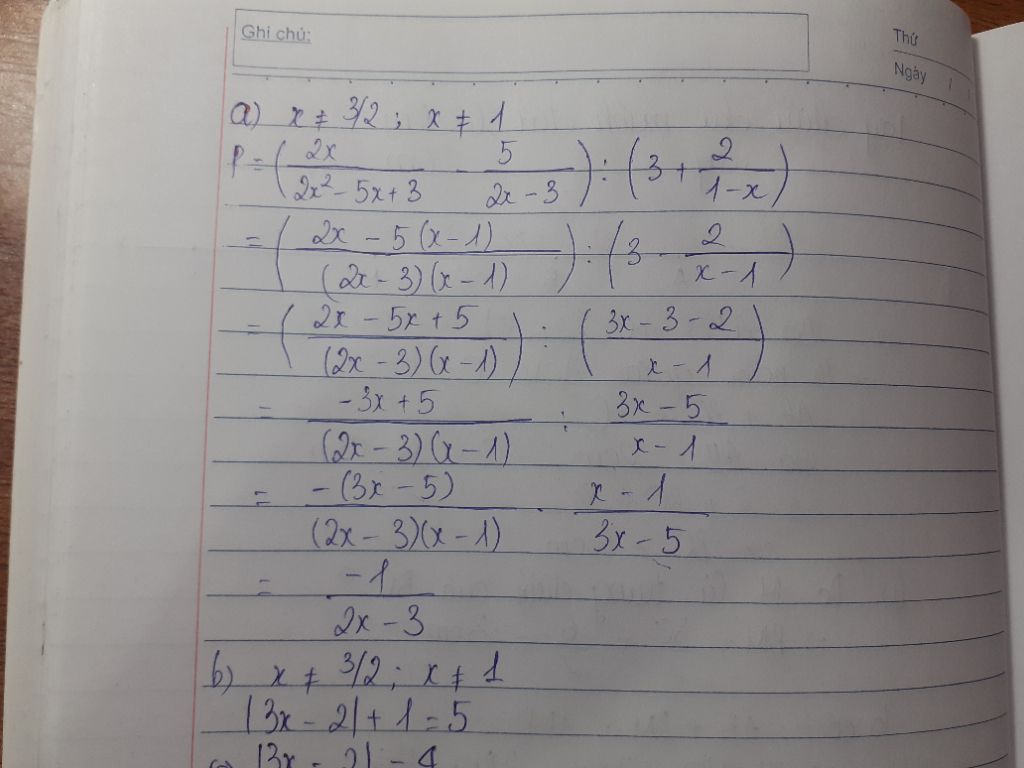 Ghi chú:
Thứ
Ngày / /
a) x ≠ 3/2 ; x ≠ 1
P = (2x/(2x² - 5x + 3) - 5/(2x - 3)) : (3 + 2/(1 - x))
= ((2x - 5(x - 1))/((2x - 3)(x - 1))) : (3 - 2/(x - 1))
= ((2x - 5x + 5)/((2x - 3)(x - 1))) : ((3x - 3 - 2)/(x - 1))
= (-3x + 5)/((2x - 3)(x - 1)) : (3x - 5)/(x - 1)
= -(3x - 5)/((2x - 3)(x - 1)) . (x - 1)/(3x - 5)
= -1/(2x - 3)
b) x ≠ 3/2 ; x ≠ 1
|3x - 2| + 1 = 5
⇔ |3x - 2| = 4